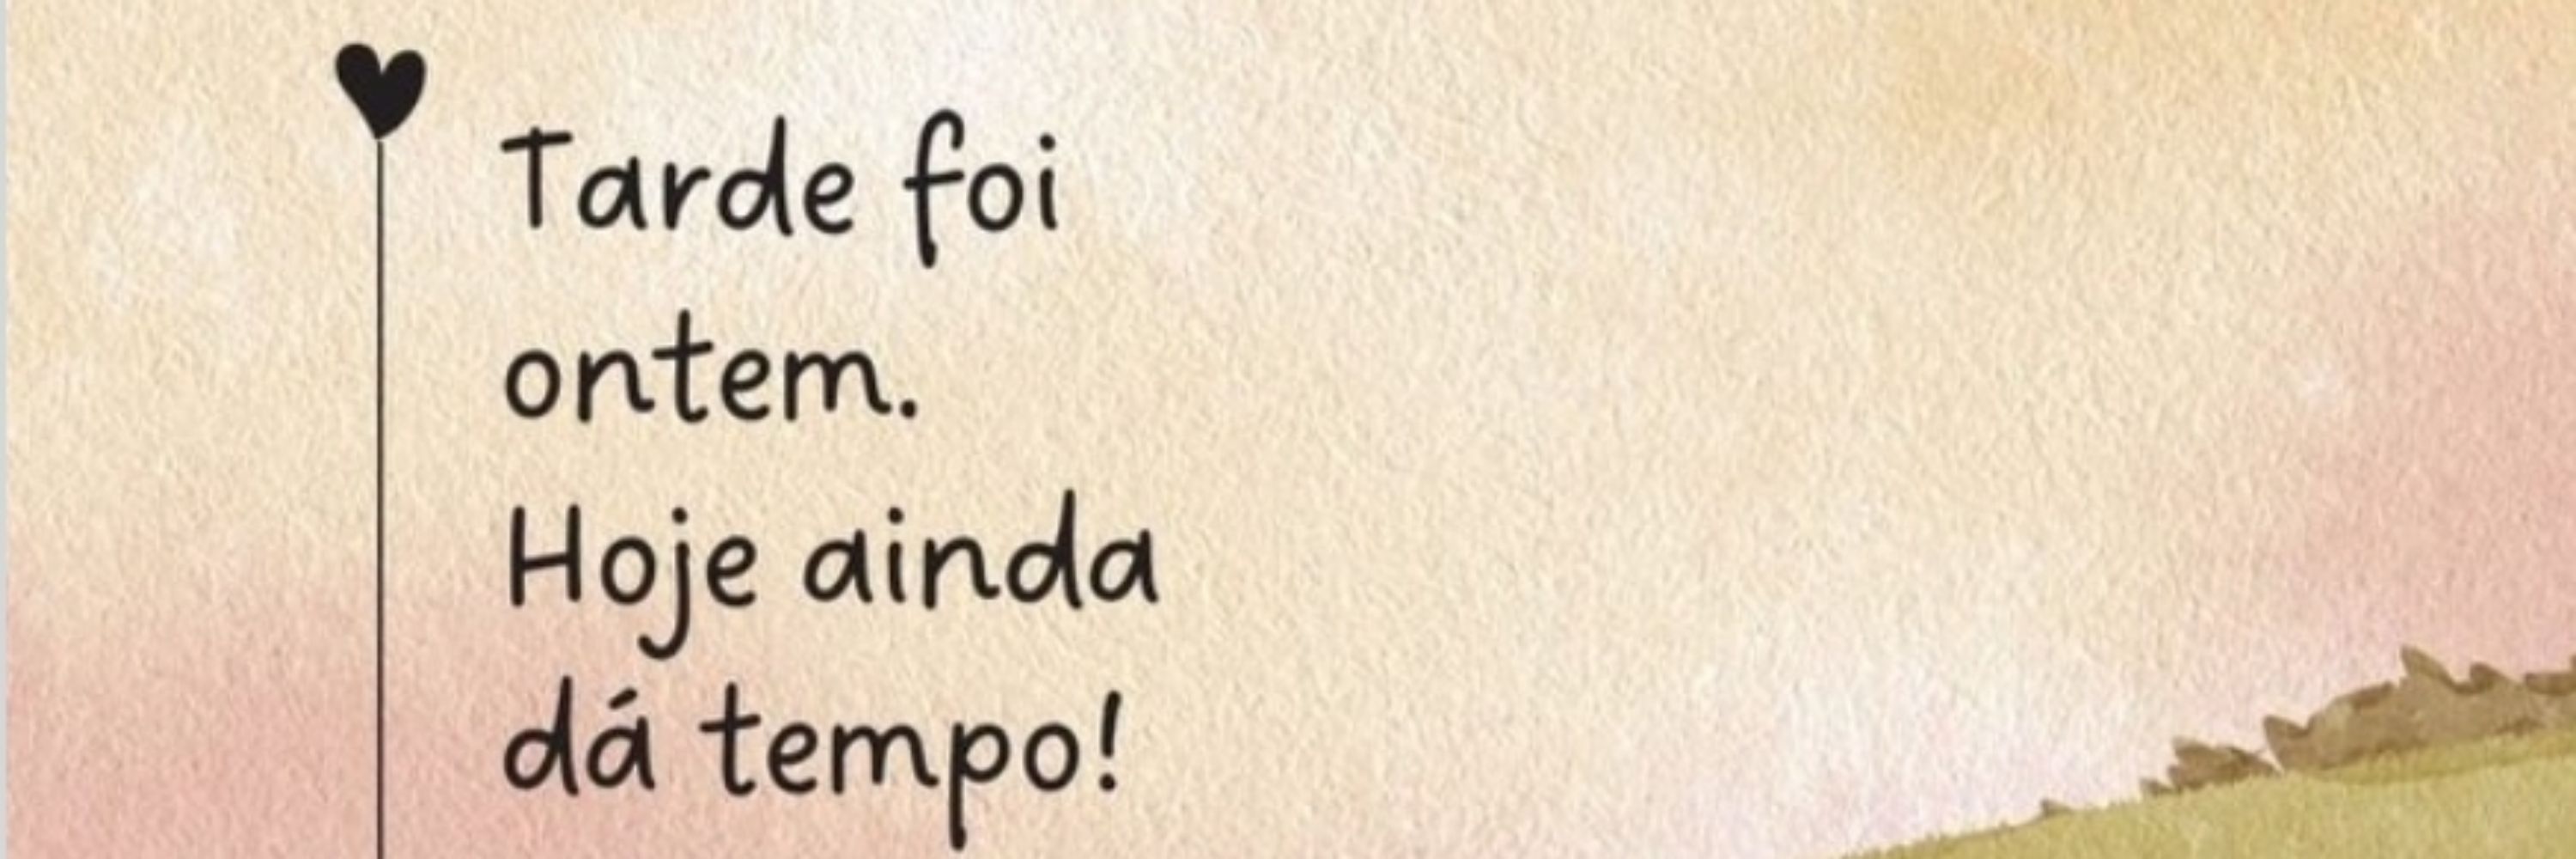 Tarde foi
ontem.
Hoje ainda
dá tempo!